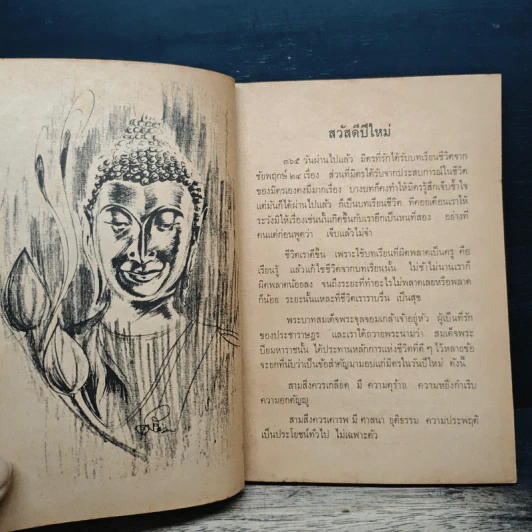 สวัสดีปีใหม่
๓๖๕ วันผ่านไปแล้ว มิตรที่รักได้รับบทเรียนชีวิตจาก
ชัยพฤกษ์ ๒๔ เรื่อง ส่วนที่มิตรได้รับจากประสบการณ์ในชีวิต
ของมิตรเองคงมีมากเรื่อง บางบทก็คงทำให้มิตรรู้สึกเจ็บช้ำใจ
แต่มันก็ได้ผ่านไปแล้ว ก็เป็นบทเรียนชีวิต ที่คอยเตือนเราให้
ระวังมิให้เรื่องเช่นนั้นเกิดขึ้นกับเราอีกเป็นหนที่สอง อย่างที่
คนแต่ก่อนพูดว่า เจ็บแล้วไม่จำ
ชีวิตเราดีขึ้น เพราะใช้บทเรียนที่ผิดพลาดเป็นครู คือ
เรียนรู้ แล้วแก้ไขชีวิตจากบทเรียนนั้น ไม่ช้าไม่นานเราก็
ผิดพลาดน้อยลง จนถึงระยะที่ทำอะไรไม่พลาดเลยหรือพลาด
ก็น้อย ระยะนั้นแหละที่ชีวิตเราราบรื่น เป็นสุข
พระบาทสมเด็จพระจุลจอมเกล้าเจ้าอยู่หัว ผู้เป็นที่รัก
ของประชาราษฎร และเราได้ถวายพระนามว่า สมเด็จพระ
ปิยมหาราชนั้น ได้ประทานหลักการแห่งชีวิตที่ดี ๆ ไว้หลายข้อ
จะยกที่นับว่าเป็นข้อสำคัญมามอบแก่มิตรในวันปีใหม่ ดังนี้
สามสิ่งควรเกลียด มี ความดุร้าย ความหยิ่งกำเริบ
ความอกตัญญู
สามสิ่งควรเคารพ มี ศาสนา ยุติธรรม ความประพฤติ
เป็นประโยชน์ทั่วไป ไม่เฉพาะตัว